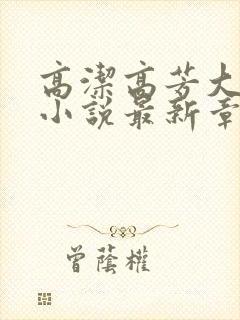 高潔高芳大
小說最新章
曾蔭權